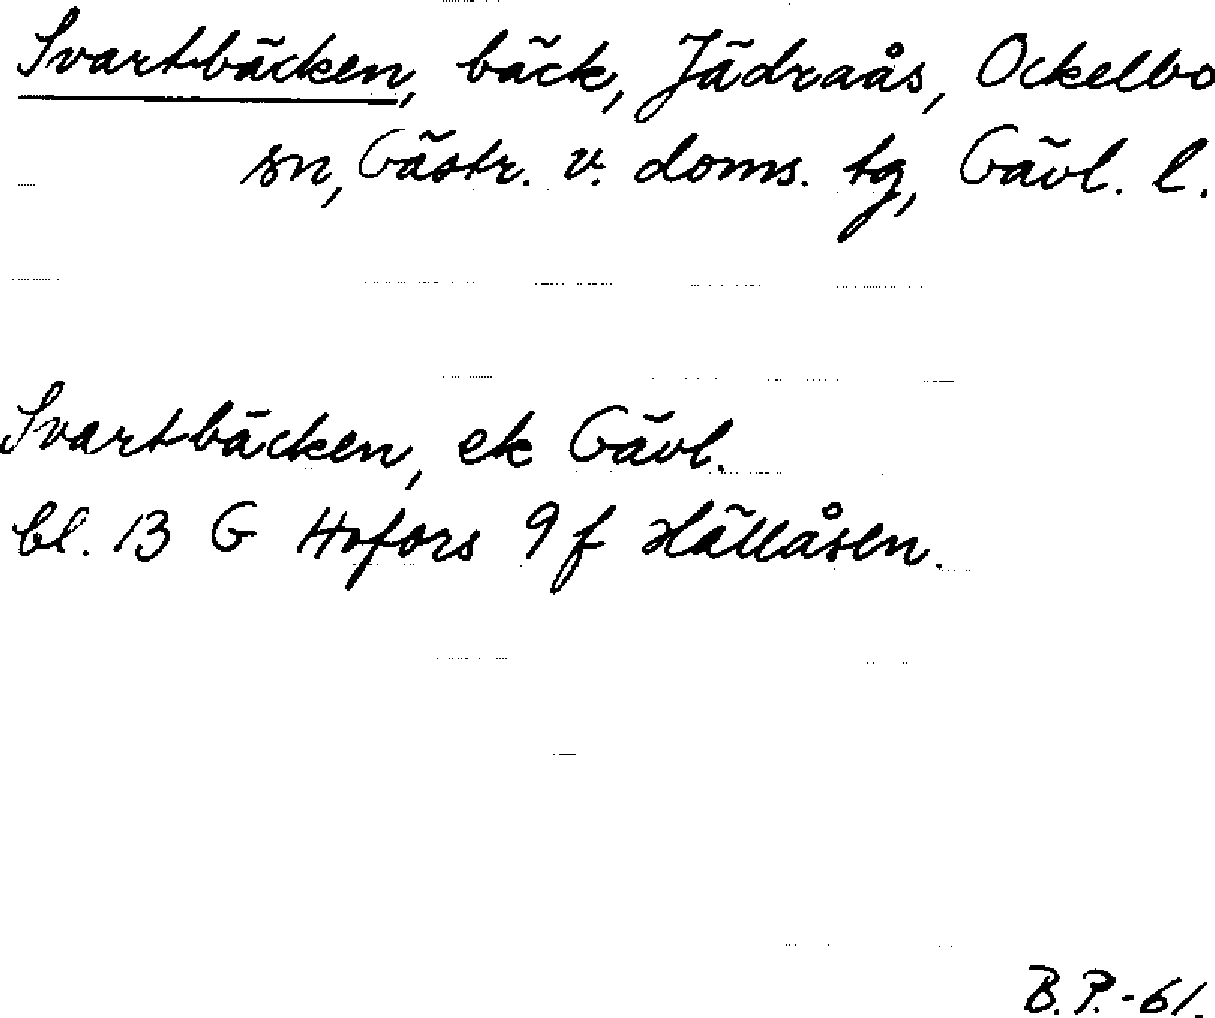 Svartbäcken, bäck, Jädraås, Ockelbo
sn, Gästr. v. doms. tg, Gävl. l.
Svartbäcken, ek Gävl.
bl. 13 G Hofors 9 f Hällåsen.
B.P.-61.